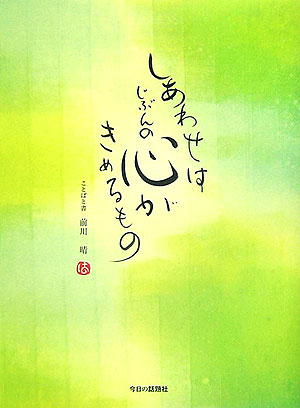 しあわせは
じぶんの
心が
きめるもの
ことばと書 前川 晴
は
今日の話題社